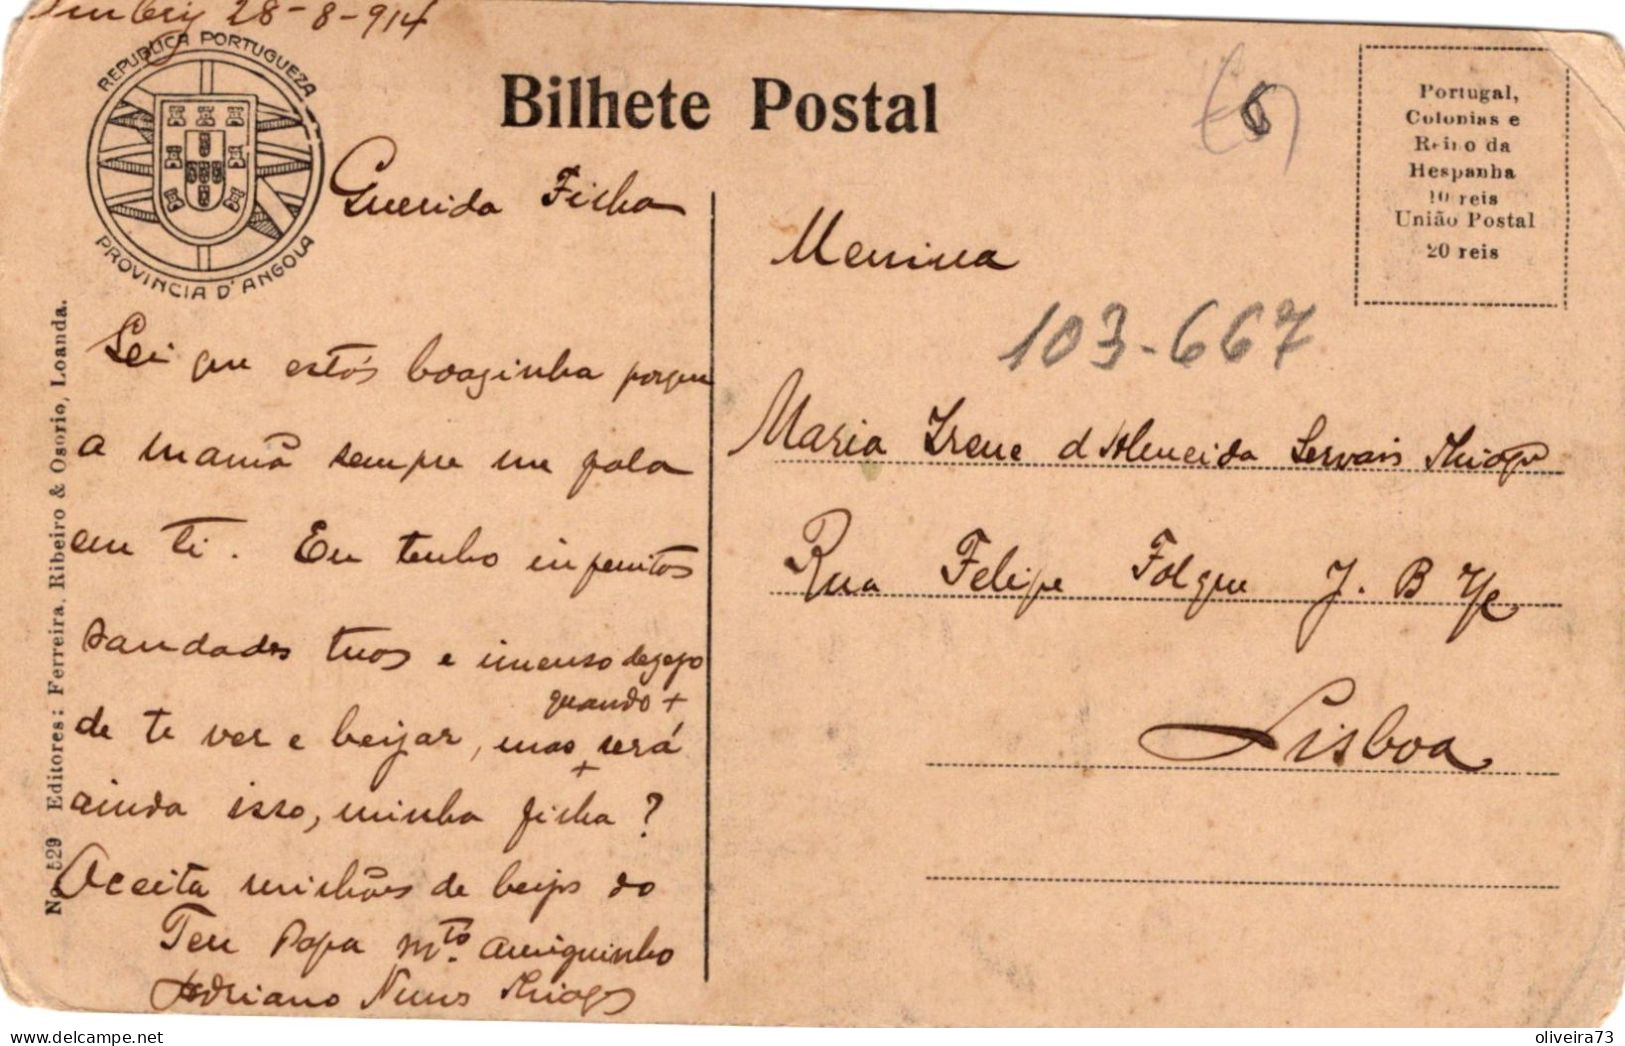 28-8-914
REPUBLICA PORTUGUEZA
PROVINCIA D'ANGOLA
Bilhete Postal
Portugal,
Colonias e
Reino da
Hespanha
10 reis
União Postal
20 reis
Querida Filha
Sei que estás boazinha porque
a mamã sempre me fala
em ti. Eu tenho infenitas
saudades tuas e imenso degejo
de te ver e beijar, mas quando será
ainda isso, minha filha?
Aceita milhões de beijos do
Teu Papá mto. amiguinho
Adriano Nunes
Menina
103-667
Maria Irene d'Almeida Servais
Rua Felipe Folque J. B
Lisboa
No. 529 Editores: Ferreira, Ribeiro & Osorio, Loanda.
oliveira73